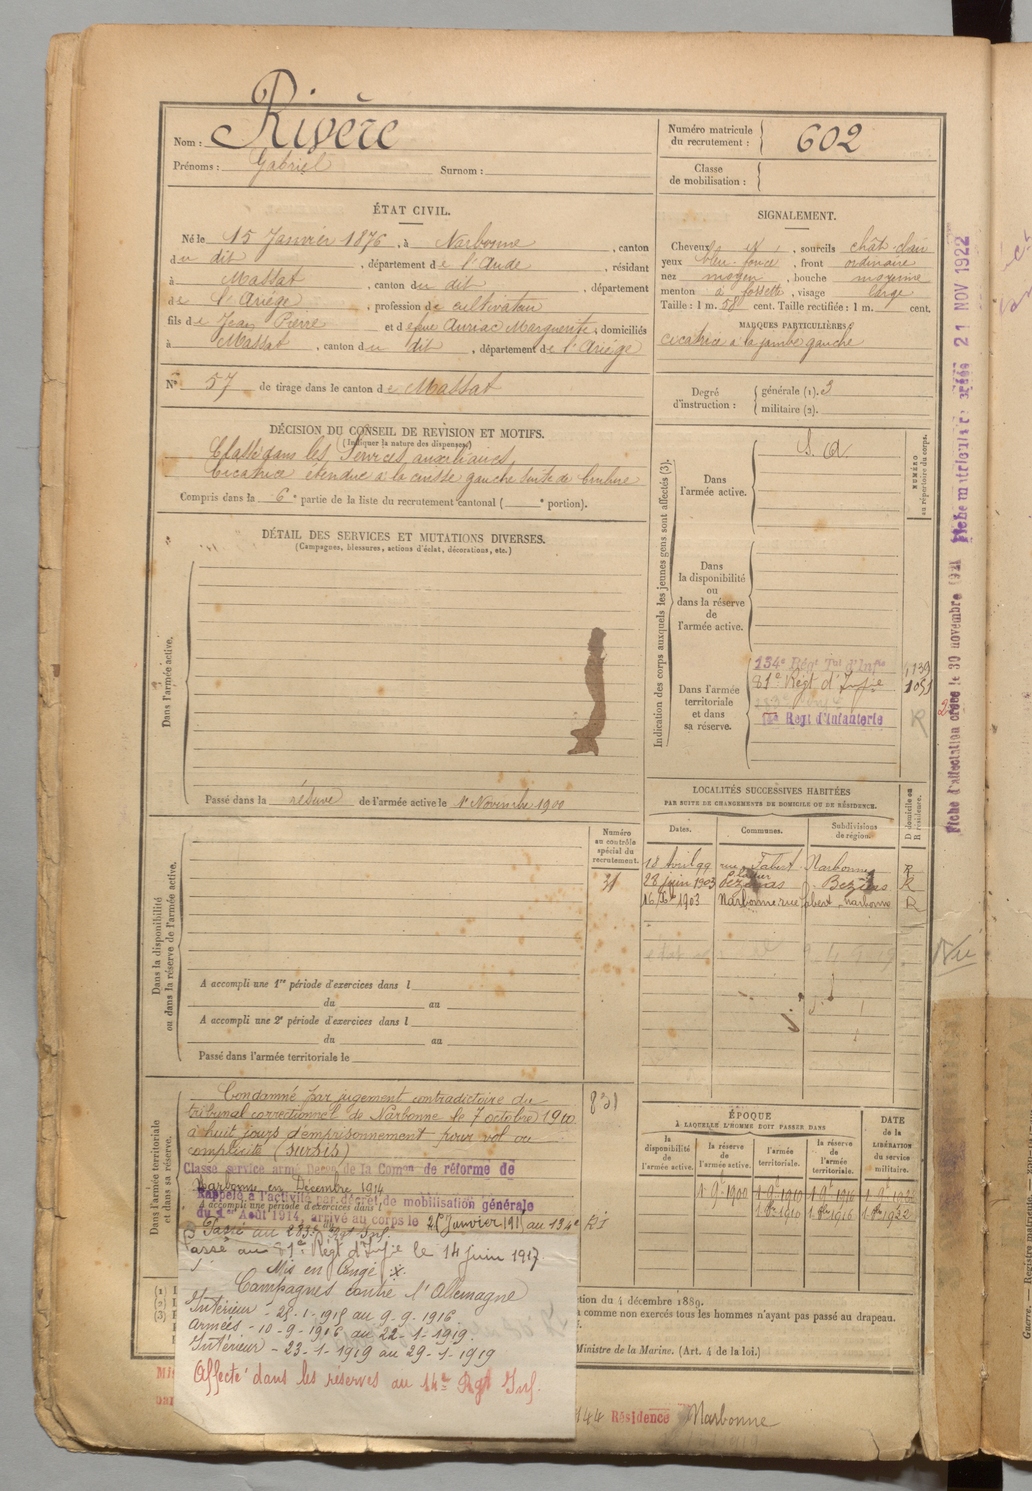 Nom : Rivère
Prénoms : Gabriel Surnom :
Numéro matricule du recrutement : 602
Classe de mobilisation :
ÉTAT CIVIL.
Né le 15 Janvier 1876, à Narbonne, canton
du dit, département de l'Aude, résidant
à Massat, canton du dit, département
de l'Ariège, profession de cultivateur
fils de Jean Pierre et de feue Auriac Marguerite, domiciliés
à Massat, canton du dit, département de l'Ariège
N° 57 de tirage dans le canton de Massat
SIGNALEMENT.
Cheveux et, sourcils chât-clair
yeux bleu-foncé, front ordinaire
nez moyen, bouche moyenne
menton à fossette, visage large
Taille : 1 m. 58 cent. Taille rectifiée : 1 m. cent.
MARQUES PARTICULIÈRES :
cicatrice à la jambe gauche
Degré d'instruction : générale (1). 3
militaire (2).
DÉCISION DU CONSEIL DE REVISION ET MOTIFS.
(Indiquer la nature des dispenses)
Classé dans les Services auxiliaires,
Cicatrice étendue à la cuisse gauche suite de brulure
Compris dans la 6e partie de la liste du recrutement cantonal ( e portion).
DÉTAIL DES SERVICES ET MUTATIONS DIVERSES.
(Campagnes, blessures, actions d'éclat, décorations, etc.)
Dans l'armée active.
Passé dans la réserve de l'armée active le 1er Novembre 1900
Indication des corps auxquels les jeunes gens sont affectés (3).
NUMÉRO au répertoire du corps.
Dans l'armée active.
S. A
Dans la disponibilité ou dans la réserve de l'armée active.
Dans l'armée territoriale et dans sa réserve.
134e Régt Tal d'Infie 1139
81e Régt d'Infie 1051
14e Régt d'Infanterie R
LOCALITÉS SUCCESSIVES HABITÉES
PAR SUITE DE CHANGEMENTS DE DOMICILE OU DE RÉSIDENCE.
Dates. Communes. Subdivisions de région. D domicile ou R résidence.
18 Avril 99 rue Fabert Narbonne R
28 juin 1903 Pézenas Béziers R
16 1903 Narbonne rue fabert narbonne R
Dans la disponibilité ou dans la réserve de l'armée active.
Numéro au contrôle spécial du recrutement.
31
A accompli une 1re période d'exercices dans l
du au
A accompli une 2e période d'exercices dans l
du au
Passé dans l'armée territoriale le
Dans l'armée territoriale et dans sa réserve.
Condamné par jugement contradictoire du
tribunal correctionnel de Narbonne le 7 octobre 1910
à huit jours d'emprisonnement pour vol ou
complicité (sursis)
831
Classé service armé Décon de la Comon de réforme de
Narbonne en Décembre 1914
A accompli une période d'exercices dans l
Rappelé à l'activité par décret de mobilisation générale
du 1er Août 1914, arrivé au corps le 25 Janvier 1915 au 134e RI
Passé au 283e Rgt Inf.
Passé au 81e Régt d'Infie le 14 juin 1917.
Mis en Congé
Campagnes contre l'Allemagne
Intérieur - 25-1-1915 au 9-9-1916.
Armées - 10-9-1916 au 22-1-1919.
Intérieur - 23-1-1919 au 29-1-1919
Affecté dans les réserves au 14e Rgt Inf.
ÉPOQUE
À LAQUELLE L'HOMME DOIT PASSER DANS
la disponibilité de l'armée active. la réserve de l'armée active. l'armée territoriale. la réserve de l'armée territoriale.
DATE de la LIBÉRATION du service militaire.
1 9e 1900 1 9e 1910 1 9e 1916 1 9e 1922
1 8e 1910 1 8e 1916 1 8e 1922
tion du 4 décembre 1889.
a comme non exercés tous les hommes n'ayant pas passé au drapeau.
Ministre de la Marine. (Art. 4 de la loi.)
144 Résidence Narbonne
Fiche d'affectation créée le 30 novembre 1921
Fiche matriculaire créée 21 NOV 1922
Nu